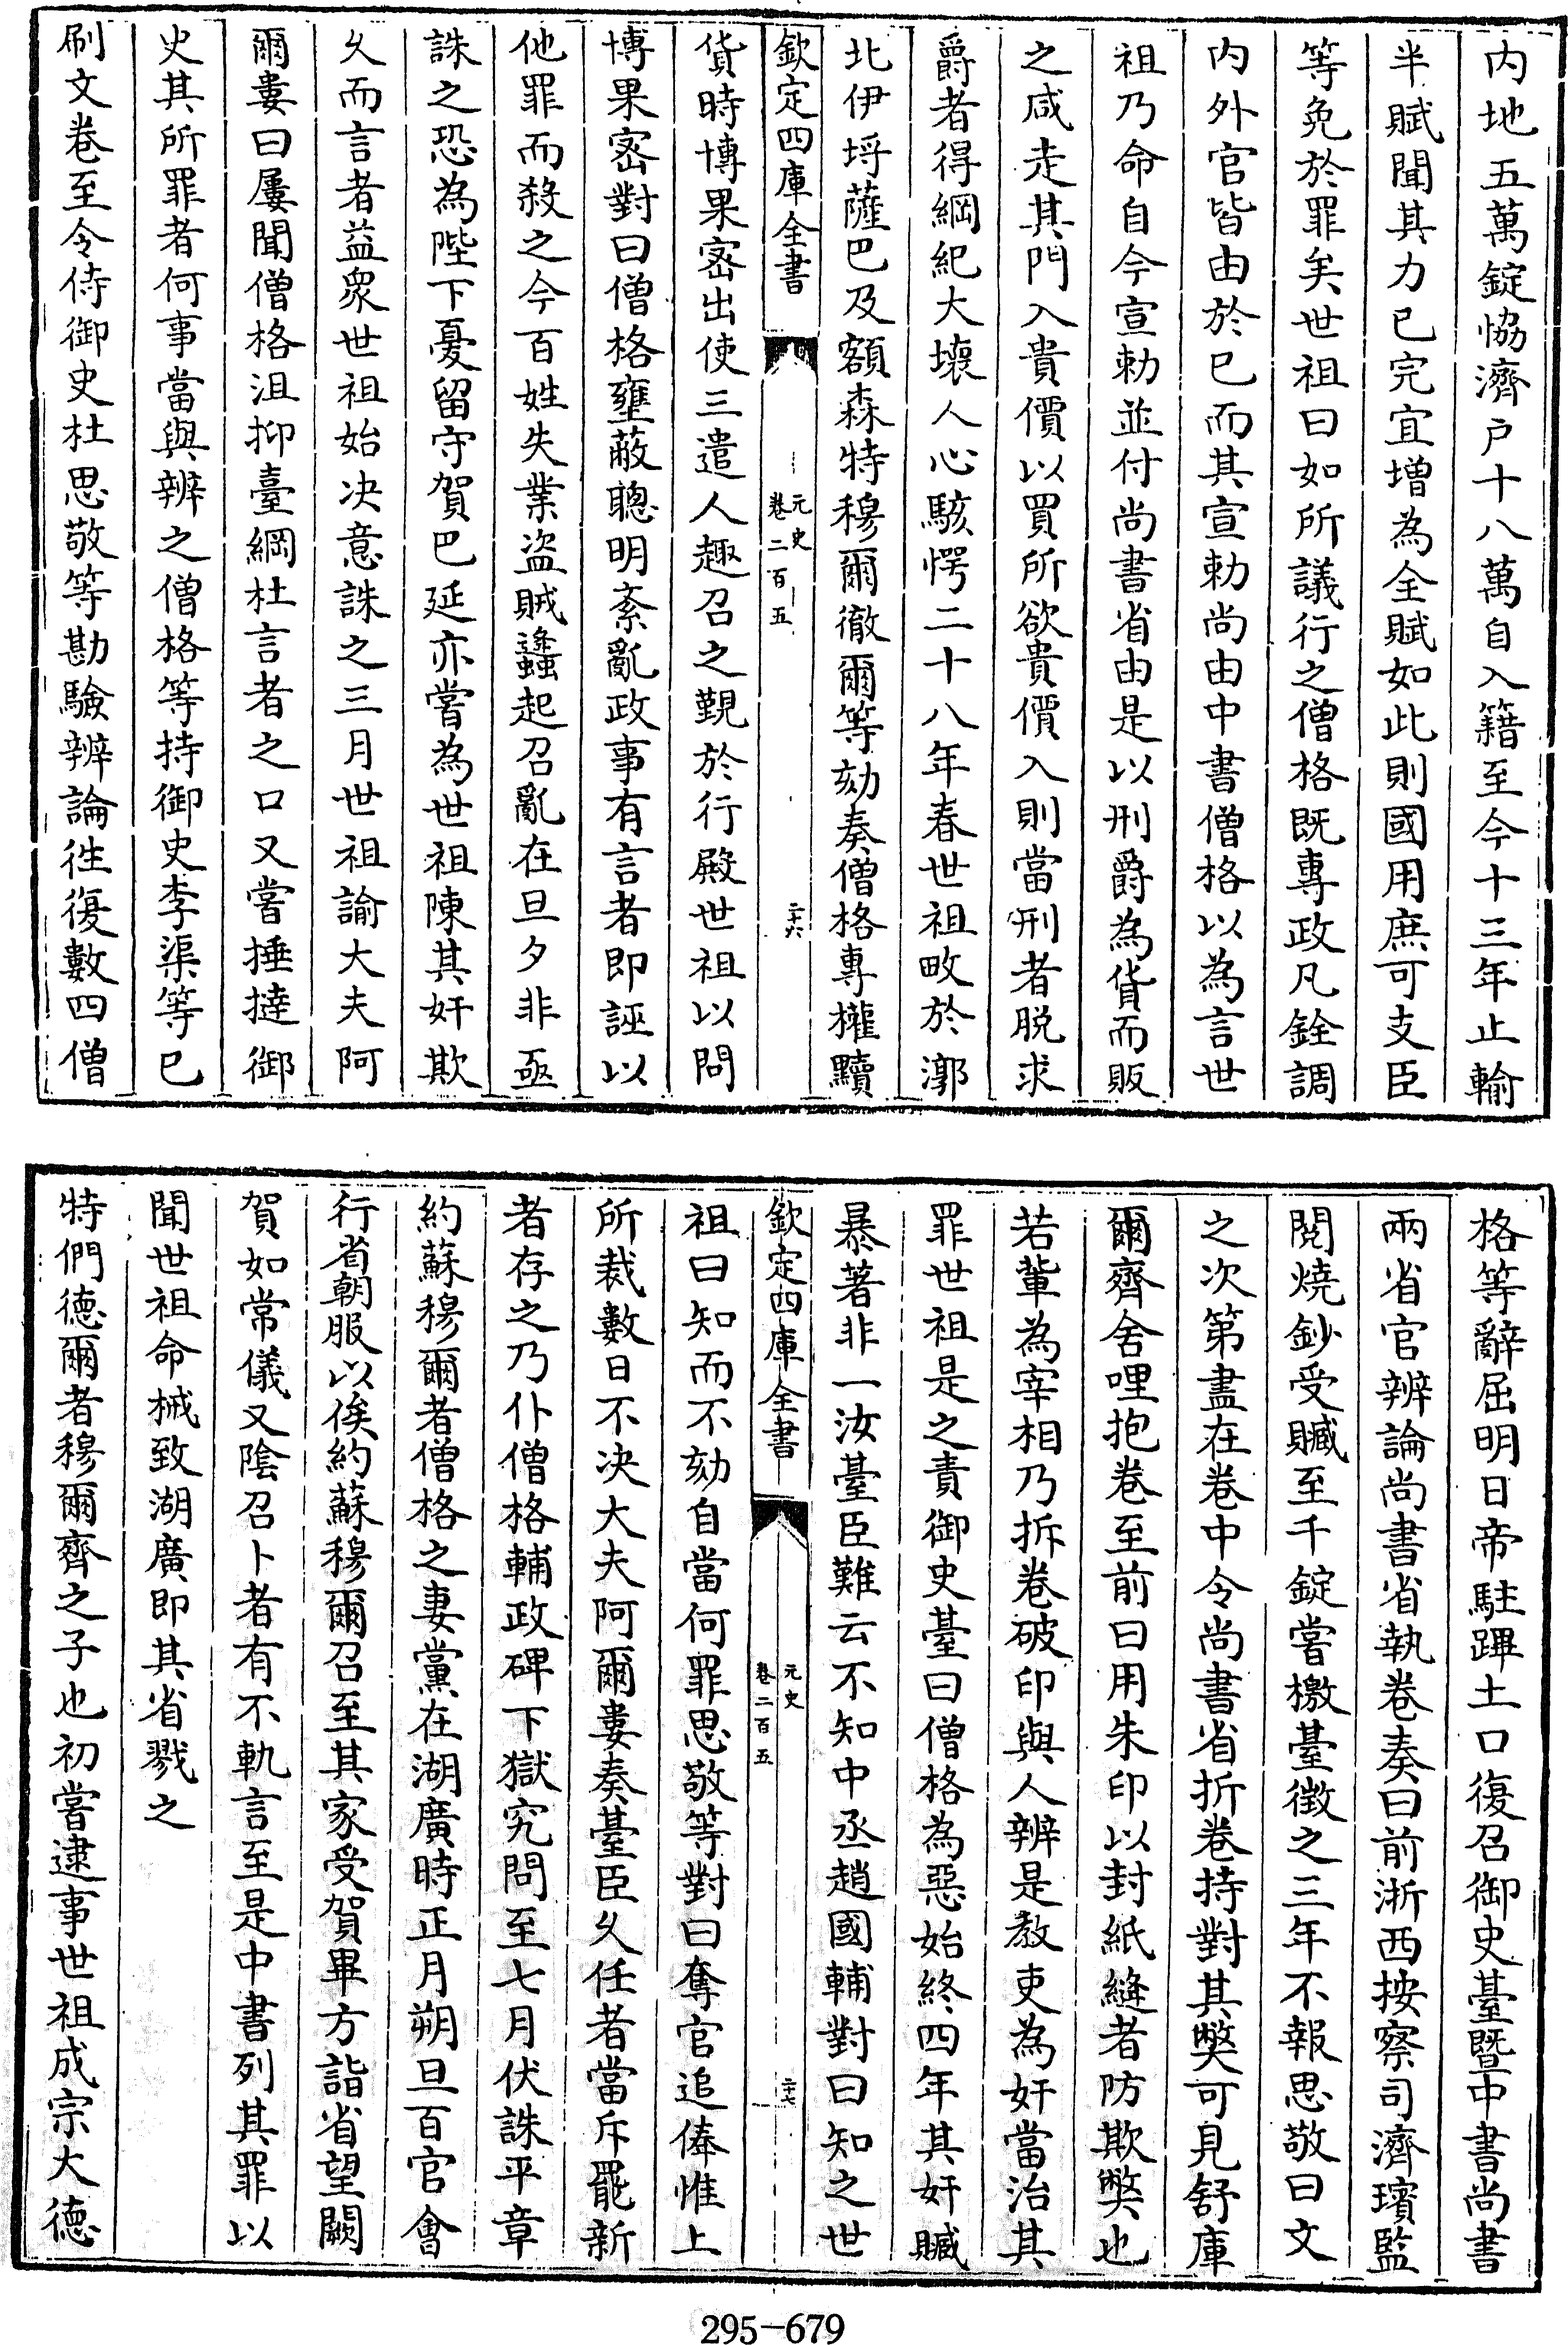 内地五萬錠恊濟户十八萬自入籍至今十三年止輸
半賦聞其力已完宜增為全賦如此則國用庶可支臣
等免於罪矣世祖曰如所議行之僧格既專政凡銓調
内外官皆由於已而其宣勅尚由中書僧格以為言世
祖乃命自今宣勅並付尚書省由是以刑爵為貨而販
之咸走其門入貴價以買所欲貴價入則當刑者脱求
爵者得綱紀大壞人心駭愕二十八年春世祖畋於漷
北伊埒薩巴及額森特穆爾徹爾等劾奏僧格專權黷
欽定四庫全書
元史
卷二百五
二十六
貨時博果密出使三遣人趣召之覲於行殿世祖以問
博果密對曰僧格壅蔽聰明紊亂政事有言者即誣以
他罪而殺之今百姓失業盗賊蠭起召亂在旦夕非亟
誅之恐為陛下憂留守賀巴延亦嘗為世祖陳其奸欺
乆而言者益衆世祖始决意誅之三月世祖諭大夫阿
爾婁曰屢聞僧格沮抑臺綱杜言者之口又嘗捶撻御
史其所罪者何事當與辨之僧格等持御史李渠等已
刷文卷至令侍御史杜思敬等勘驗辨論徃復數四僧
格等辭屈明日帝駐蹕土口復召御史臺暨中書尚書
兩省官辨論尚書省執卷奏曰前浙西按察司濟璸監
閱燒鈔受贓至千錠嘗檄臺徴之三年不報思敬曰文
之次第盡在卷中今尚書省折卷持對其獘可見舒庫
爾齊舍哩抱卷至前曰用朱印以封紙縫者防欺獘也
若輩為宰相乃拆卷破印與人辨是教吏為奸當治其
罪世祖是之責御史臺曰僧格為惡始終四年其奸贓
暴著非一汝臺臣難云不知中丞趙國輔對曰知之世
欽定四庫全書
元史
卷二百五
二十七
祖曰知而不劾自當何罪思敬等對曰奪官追俸惟上
所裁數日不决大夫阿爾婁奏臺臣乆任者當斥罷新
者存之乃仆僧格輔政碑下獄究問至七月伏誅平章
約蘇穆爾者僧格之妻黨在湖廣時正月朔旦百官會
行省朝服以俟約蘇穆爾召至其家受賀畢方詣省望闕
賀如常儀又陰召卜者有不軌言至是中書列其罪以
聞世祖命械致湖廣即其省戮之
特們德爾者穆爾齊之子也初嘗逮事世祖成宗大德
295-679